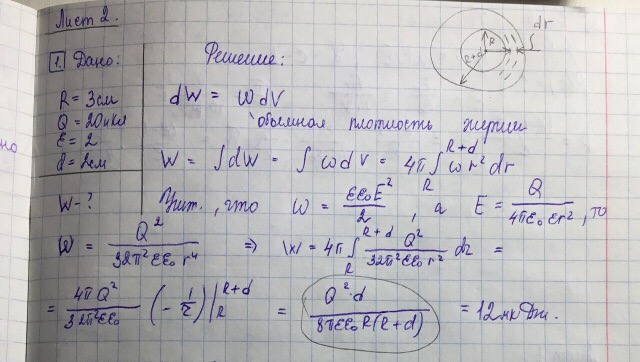 Лист 2.
1. Дано:
Решение:
R
R+d
dr
R = 3см
Q = 20нКл
ε = 2
d = 2см
W - ?
dW = ωdV
объемная плотность энергии
W = ∫dW = ∫ωdV = 4π ∫_R^{R+d} ω r² dr
Учит., что ω = εε₀E²/2, а E = Q/(4πε₀εr²), то
ω = Q²/(32π²εε₀r⁴) ⇒ W = 4π ∫_R^{R+d} Q²/(32π²εε₀r²) dr =
= 4πQ²/(32π²εε₀) (-1/r)|_R^{R+d} = Q²·d/(8πεε₀R(R+d)) = 12мкДж.